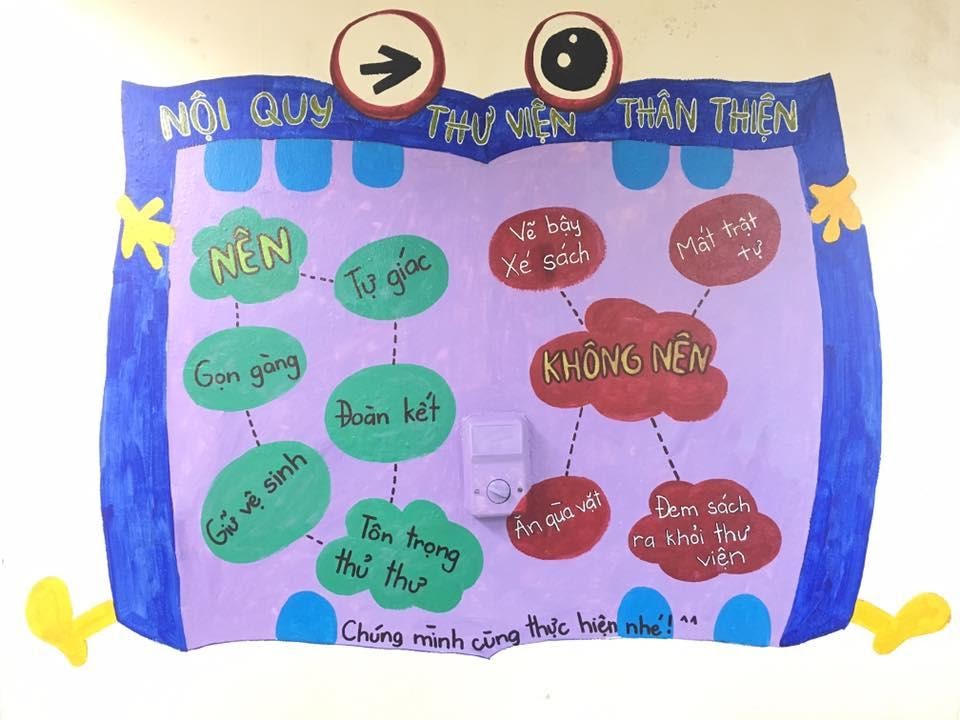 NỘI QUY THƯ VIỆN THÂN THIỆN
NÊN
Tự giác
Gọn gàng
Đoàn kết
Giữ vệ sinh
Tôn trọng
thủ thư
Vẽ bây
Xé sách
Mất trật
tự
KHÔNG NÊN
Ăn qùa vặt
Đem sách
ra khỏi thư
viện
Chúng mình cùng thực hiện nhé! ^^